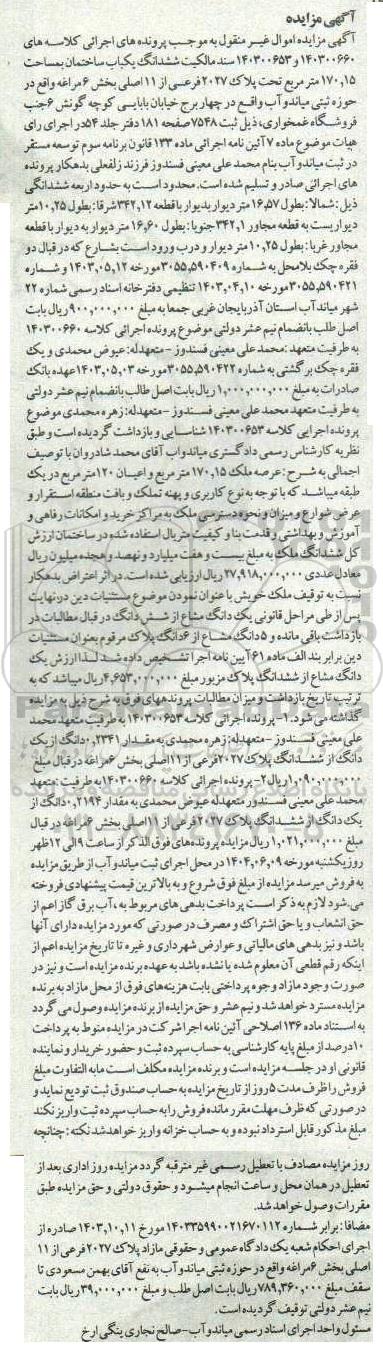 آگهی مزایده
آگهی مزایده اموال غیر منقول به موجب پرونده های اجرائی کلاسه های
۱۴۰۳۰۰۶۶۰ و ۱۴۰۳۰۰۶۵۳ سند مالکیت ششدانگ یکباب ساختمان بمساحت
۱۷۰,۱۵ متر مربع تحت پلاک ۲۰۲۷ فرعی از ۱۱ اصلی بخش ۶ مراغه واقع در
حوزه ثبتی میاندوآب واقع در چهار برج خیابان بابایی کوچه گونش ۶ جنب
فروشگاه غمخواری، ذیل ثبت ۷۵۴۸ صفحه ۱۸۱ دفتر جلد ۵۴ در اجرای رای
هیات موضوع ماده ۷ آئین نامه اجرائی ماده ۱۳۳ قانون برنامه سوم توسعه مستقر
در ثبت میاندوآب بنام محمدعلی معینی فسندوز فرزند زلفعلی بدهکار پرونده
های اجرائی صادر و تسلیم شده است. محدود است به حدود اربعه ششدانگی
ذیل: شمالا: بطول ۱۶,۵۷ متر دیوار بدیوار با قطعه ۳۴۲,۱۲ شرقا: بطول ۱۰,۲۵ متر
دیواریست به قطعه مجاور ۳۴۲,۱ جنوبا: بطول ۱۶,۶۰ متر دیوار به دیوار با قطعه
مجاور غربا: بطول ۱۰,۲۵ متر دیوار و درب ورود است بشارع که در قبال دو
فقره چک بلامحل به شماره ۳۰۵۵,۵۹۰۴۰۹ مورخه ۱۴۰۳,۰۵,۱۲ و شماره
۳۰۵۵,۵۹۰۴۲۱ مورخه ۱۴۰۳,۰۴,۱۰ تنظیمی دفترخانه اسناد رسمی شماره ۲۲
شهر میاندوآب استان آذربایجان غربی جمعا به مبلغ ۹۰۰,۰۰۰,۰۰۰ ریال بابت
اصل طلب بانضمام نیم عشر دولتی موضوع پرونده اجرائی کلاسه ۱۴۰۳۰۰۶۶۰
به طرفیت متعهد: محمدعلی معینی فسندوز -متعهدله: عیوض محمدی و یک
فقره چک برگشتی به شماره ۳۰۵۵,۵۹۰۴۲۲ مورخه ۱۴۰۳,۰۵,۰۳ عهده بانک
صادرات به مبلغ ۱,۰۰۰,۰۰۰,۰۰۰ ریال بابت اصل طلب بانضمام نیم عشر دولتی
به طرفیت متعهد محمدعلی معینی فسندوز -متعهدله: زهره محمدی موضوع
پرونده اجرایی کلاسه ۱۴۰۳۰۰۶۵۳ شناسایی و بازداشت گردیده است و طبق
نظریه کارشناس رسمی دادگستری میاندواب آقای محمد شادروان با توصیف
اجمالی به شرح: عرصه ملک ۱۷۰,۱۵ متر مربع و اعیان ۱۲۰ متر مربع در یک
طبقه میباشد که با توجه به نوع کاربری و پهنه تملک و بافت منطقه استقرار و
عرض شوارع و میزان و نحوه دسترسی ملک به مراکز خرید و امکانات رفاهی و
آموزش و بهداشتی و قدمت بنا و کیفیت متریال استفاده شده در ساختمان ارزش
کل ششدانگ ملک به مبلغ بیست و هفت میلیارد و نهصد و هجده میلیون ریال
معادل عددی ۲۷,۹۱۸,۰۰۰,۰۰۰ ریال ارزیابی شده است. در اثر اعتراض بدهکار
نسبت به توقیف ملک خویش با عنوان نمودن موضوع مستثنیات دین در نهایت
پس از طی مراحل قانونی یک دانگ مشاع از شش دانگ در قبال مطالبات در
بازداشت باقی مانده و ۵ دانگ مشاع از ۶ دانگ پلاک مرقوم بعنوان مستثنیات
دین برابر بند الف ماده ۶۱ آیین نامه اجرا تشخیص داده شد لذا ارزش یک
دانگ مشاع از ششدانگ پلاک مزبور مبلغ ۴,۶۵۳,۰۰۰,۰۰۰ ریال میباشد که به
ترتیب تاریخ بازداشت و میزان مطالبات پرونده های فوق به شرح ذیل به مزایده
گذاشته می شود. ۱- پرونده اجرائی کلاسه ۱۴۰۳۰۰۶۵۳ به طرفیت متعهد محمد
علی معینی فسندوز -متعهدله: زهره محمدی به مقدار ۰,۲۳۴۱ دانگ از یک
دانگ از ششدانگ پلاک ۲۰۲۷ فرعی از ۱۱ اصلی بخش ۶ مراغه در قبال مبلغ
۱,۰۹۰,۰۰۰,۰۰۰ ریال ۲- پرونده اجرائی کلاسه ۱۴۰۳۰۰۶۶۰ به طرفیت متعهد
محمد علی معینی فسندوز متعهدله عیوض محمدی به مقدار ۰,۲۱۹۴ دانگ از
یک دانگ از ششدانگ پلاک ۲۰۲۷ فرعی از ۱۱ اصلی بخش ۶ مراغه در قبال
مبلغ ۱,۰۲۱,۰۰۰,۰۰۰ ریال مزایده پرونده های فوق الذکر از ساعت ۹ الی ۱۲ ظهر
روز یکشنبه مورخه ۱۴۰۴,۰۶,۰۹ در محل اجرای ثبت میاندوآب از طریق مزایده
به فروش میرسد مزایده از مبلغ فوق شروع و به بالاترین قیمت پیشنهادی فروخته
می شود لازم به ذکر است پرداخت بدهی های مربوط به، آب برق گاز اعم از
حق انشعاب و یا حق اشتراک و مصرف در صورتی که مورد مزایده دارای آنها
باشد و نیز بدهی های مالیاتی و عوارض شهرداری و غیره تا تاریخ مزایده اعم از
اینکه رقم قطعی آن معلوم شده یا نشده باشد به عهده برنده مزایده است و نیز در
صورت وجود مازاد وجوه پرداختی بابت هزینه های فوق از محل مازاد به برنده
مزایده مسترد خواهد شد و نیم عشر و حق مزایده از برنده مزایده وصول می گردد
به استناد ماده ۱۳۶ اصلاحی آئین نامه اجرا شرکت در مزایده منوط به پرداخت
۱۰ درصد از مبلغ پایه کارشناسی به حساب سپرده ثبت و حضور خریدار و نماینده
قانونی او در جلسه مزایده است و برنده مزایده مکلف است مابه التفاوت مبلغ
فروش را ظرف مدت ۵ روز از تاریخ مزایده به حساب صندوق ثبت تودیع نماید و
در صورتی که ظرف مهلت مقرر مانده فروش را به حساب سپرده ثبت واریز نکند
مبلغ مذکور قابل استرداد نبوده و به حساب خزانه واریز خواهد شد نکته: چنانچه
روز مزایده مصادف با تعطیل رسمی غیر مترقبه گردد مزایده روز اداری بعد از
تعطیل در همان محل و ساعت انجام میشود و حقوق دولتی و حق مزایده طبق
مقررات وصول خواهد شد.
مضافا: برابر شماره ۱۴۰۳۳۵۹۹۰۰۰۲۱۶۷۰۱۱۲ مورخ ۱۴۰۳,۱۰,۱۱ صادره از
اجرای احکام شعبه یک دادگاه عمومی و حقوقی مازاد پلاک ۲۰۲۷ فرعی از ۱۱
اصلی بخش ۶ مراغه واقع در حوزه ثبتی میاندوآب به نفع آقای بهمن مسعودی تا
سقف مبلغ ۷۸۹,۳۶۰,۰۰۰ ریال بابت اصل طلب و مبلغ ۳۹,۰۰۰,۰۰۰ ریال بابت
نیم عشر دولتی توقیف گردیده است.
مسئول واحد اجرای اسناد رسمی میاندوآب-صالح نجاری ینگی ارخ